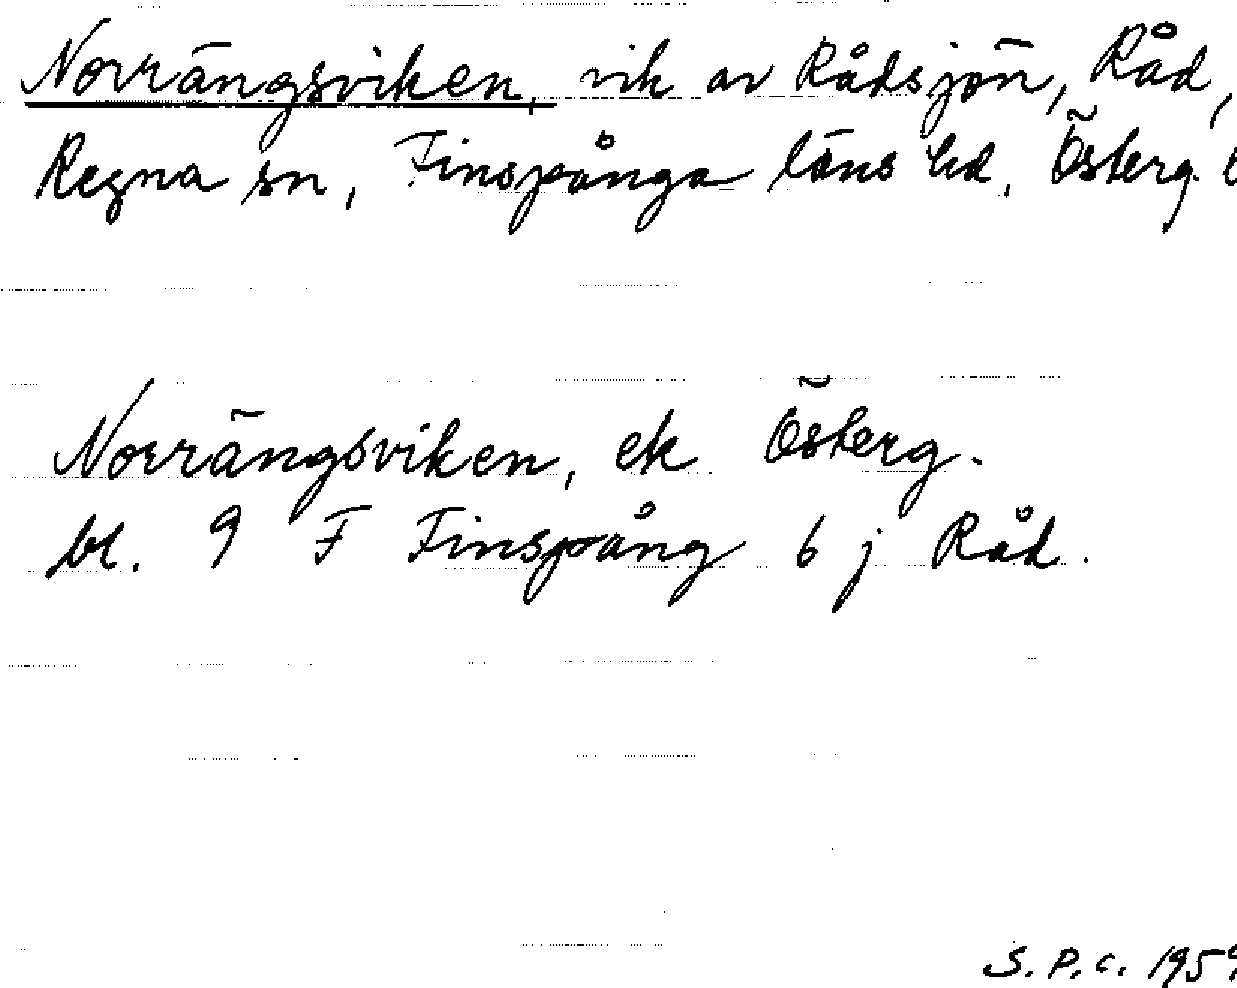 Norrängsviken, vik av Rådsjön, Råd,
Regna sn, Finspånga läns hd, Österg. l
Norrängsviken, ek Österg.
bl. 9 F Finspång 6 j Råd.
S.P.C. 1959